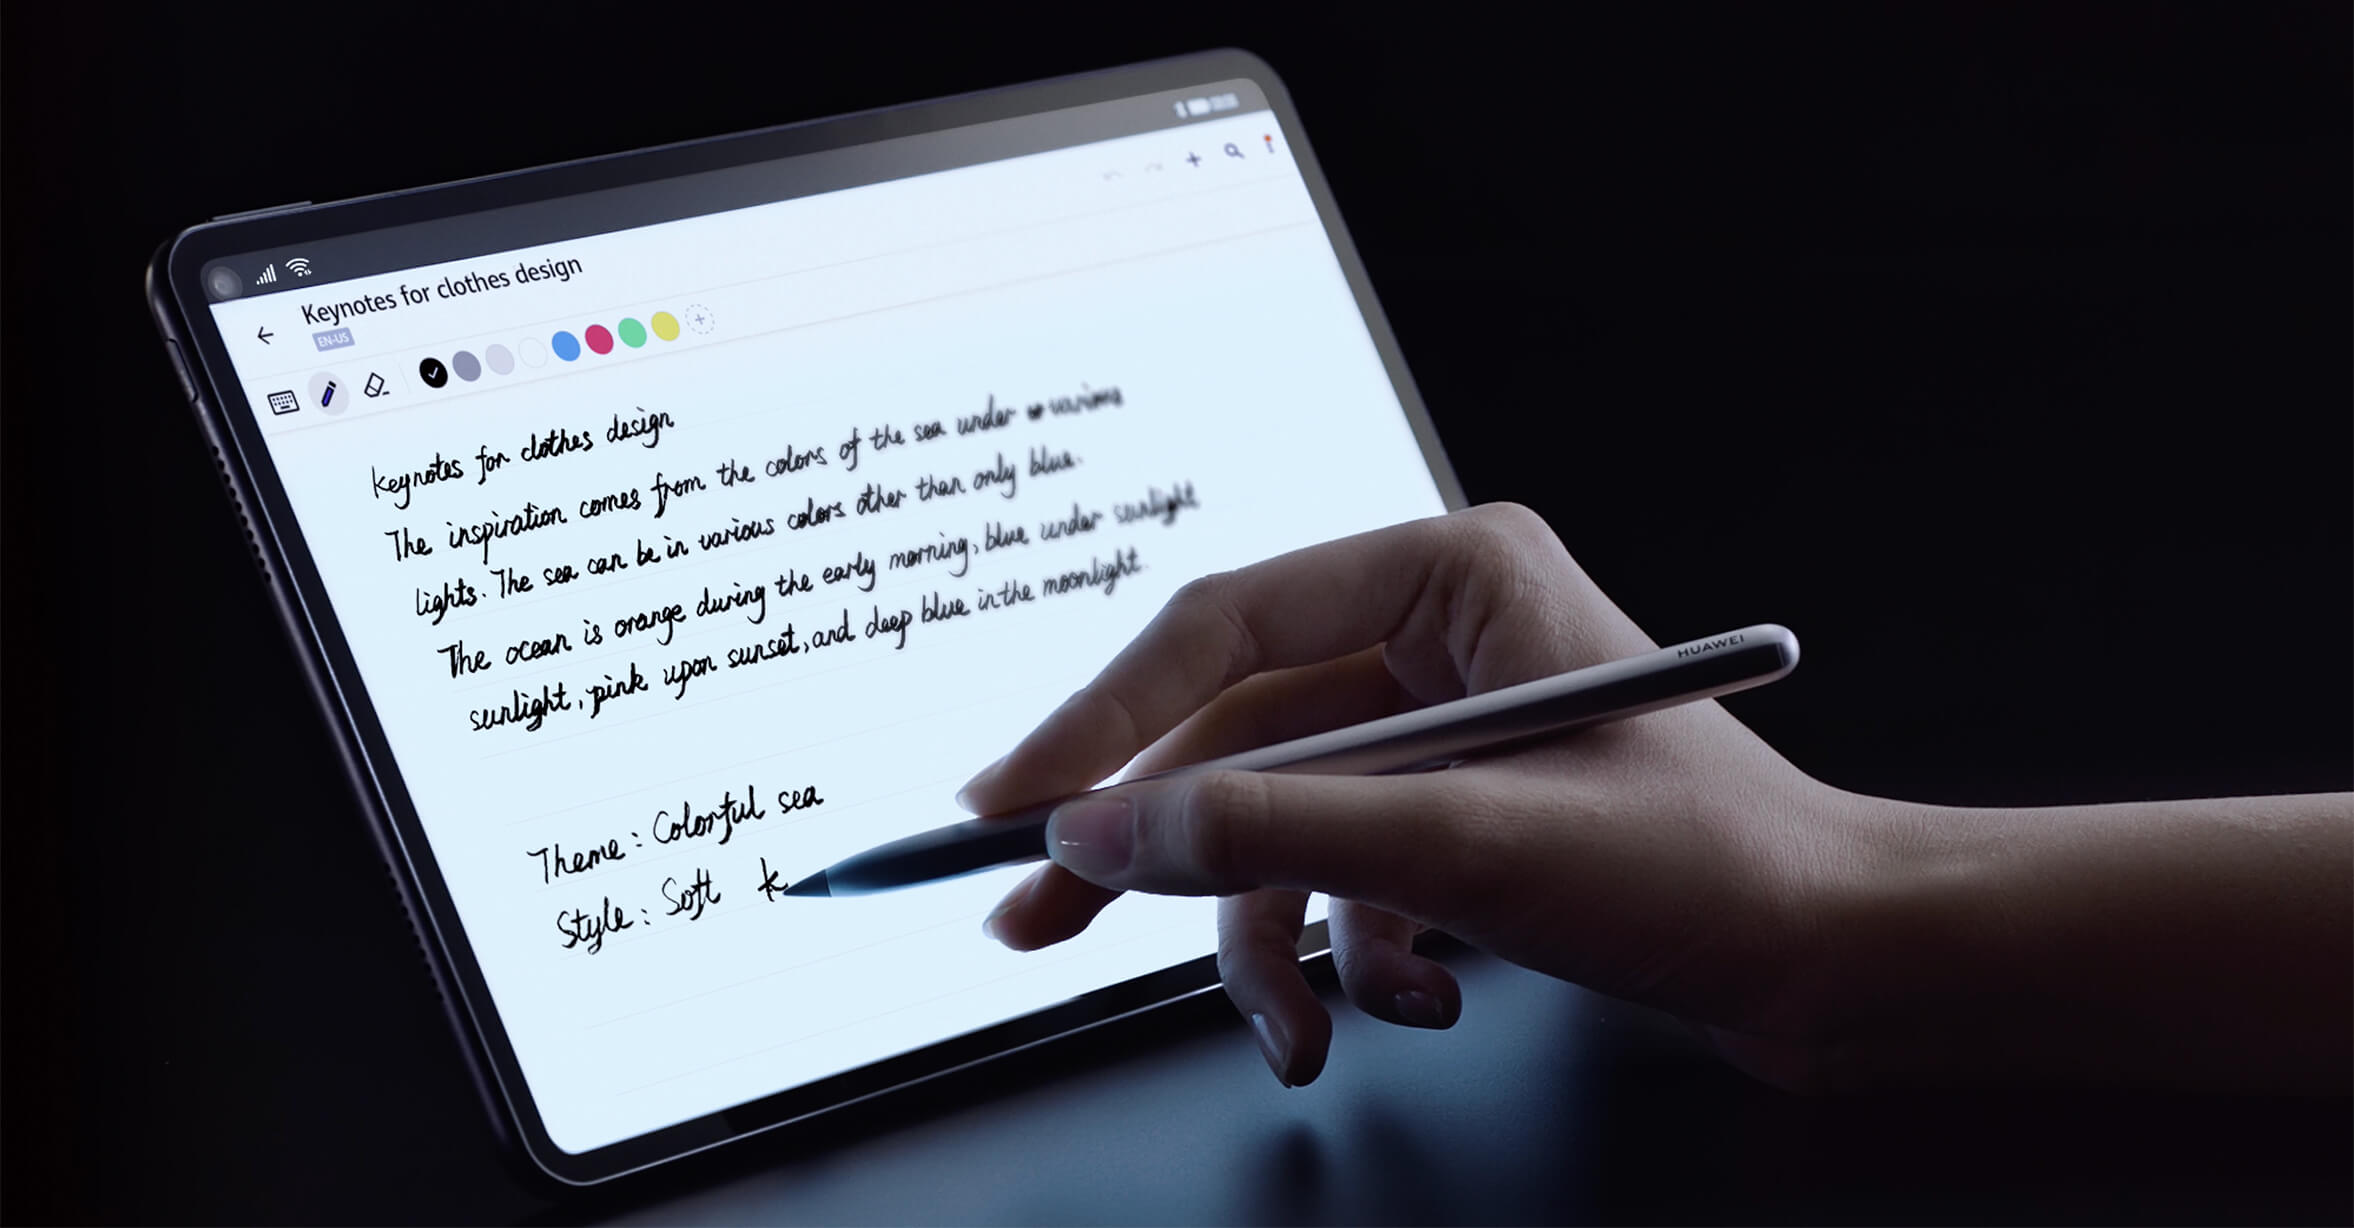 Keynotes for clothes design
EN-US
keynotes for clothes design
The inspiration comes from the colors of the sea under various
lights. The sea can be in various colors other than only blue.
The ocean is orange during the early morning, blue under sunlight
sunlight, pink upon sunset, and deep blue in the moonlight.
Theme: Colorful sea
Style: Soft k
HUAWEI